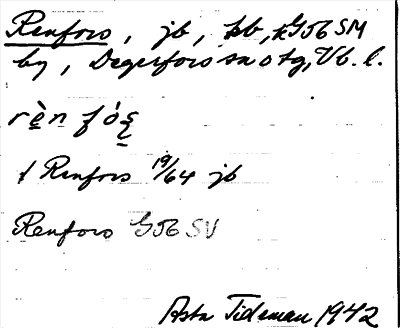 Renfors, jb, kb, kG56SM
by, Degerfors sn o tg, Vb. l.
rèn fó̀ș
f Renfors 19/64 jb
Renfors G56 SV
Asta Tideman 1942